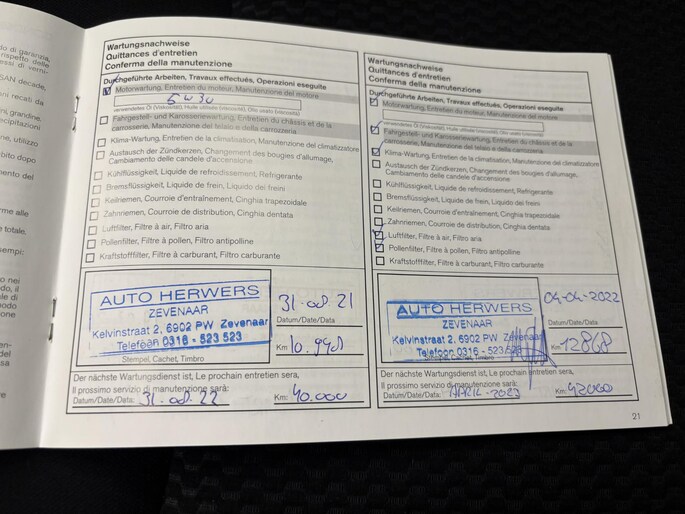 di garanzia,
rispetto delle
SAN decade,
recati da
grandine,
cipitazioni
utilizzo
bito dopo
mento del
me alle
totale.
sempi:
nei
Wartungsnachweise
Quittances d'entretien
Conferma della manutenzione
Durchgeführte Arbeiten, Travaux effectués, Operazioni eseguite
Motorwartung, Entretien du moteur, Manutenzione del motore
5W30
verwendetes Öl (Viskosität), Huile utilisée (viscosité), Olio usato (viscosità)
Fahrgestell- und Karosseriewartung, Entretien du châssis et de la
carrosserie, Manutenzione del telaio e della carrozzeria
Klima-Wartung, Entretien de la climatisation, Manutenzione del climatizzatore
Austausch der Zündkerzen, Changement des bougies d'allumage,
Cambiamento delle candele d'accensione
Kühlflüssigkeit, Liquide de refroidissement, Refrigerante
Bremsflüssigkeit, Liquide de frein, Liquido dei freini
Keilriemen, Courroie d'entraînement, Cinghia trapezoidale
Zahnriemen, Courroie de distribution, Cinghia dentata
Luftfilter, Filtre à air, Filtro aria
Pollenfilter, Filtre à pollen, Filtro antipolline
Kraftstofffilter, Filtre à carburant, Filtro carburante
AUTO HERWERS
ZEVENAAR
Kelvinstraat 2, 6902 PW Zevenaar
Telefoon 0316 - 523 523
Stempel, Cachet, Timbro
31-08-21
Datum/Date/Data
Km: 10.948
Der nächste Wartungsdienst ist, Le prochain entretien sera,
Il prossimo servizio di manutenzione sarà:
Datum/Date/Data: 31-08-22 Km: 40.000
Wartungsnachweise
Quittances d'entretien
Conferma della manutenzione
Durchgeführte Arbeiten, Travaux effectués, Operazioni eseguite
Motorwartung, Entretien du moteur, Manutenzione del motore
verwendetes Öl (Viskosität), Huile utilisée (viscosité), Olio usato (viscosità)
Fahrgestell- und Karosseriewartung, Entretien du châssis et de la
carrosserie, Manutenzione del telaio e della carrozzeria
Klima-Wartung, Entretien de la climatisation, Manutenzione del climatizzatore
Austausch der Zündkerzen, Changement des bougies d'allumage,
Cambiamento delle candele d'accensione
Kühlflüssigkeit, Liquide de refroidissement, Refrigerante
Bremsflüssigkeit, Liquide de frein, Liquido dei freini
Keilriemen, Courroie d'entraînement, Cinghia trapezoidale
Zahnriemen, Courroie de distribution, Cinghia dentata
Luftfilter, Filtre à air, Filtro aria
Pollenfilter, Filtre à pollen, Filtro antipolline
Kraftstofffilter, Filtre à carburant, Filtro carburante
AUTO HERWERS
ZEVENAAR
Kelvinstraat 2, 6902 PW Zevenaar
Telefoon 0316 - 523 523
Stempel, Cachet, Timbro
04-04-2022
Datum/Date/Data
Km: 12868
Der nächste Wartungsdienst ist, Le prochain entretien sera,
Il prossimo servizio di manutenzione sarà:
Datum/Date/Data: APRIL-2023 Km: 42000
21